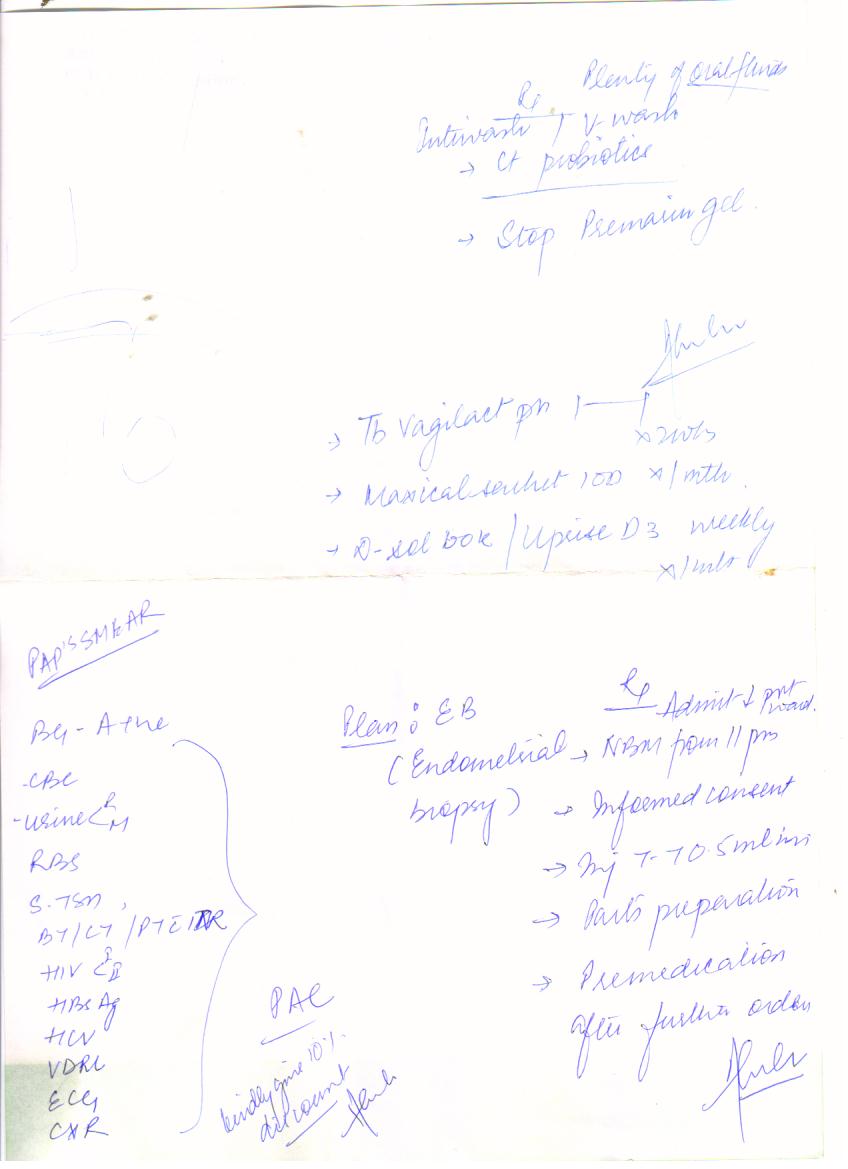 Plenty of oral fluids
Rx
Intiwash / V-wash
→ Ct probiotics
→ Stop Premarin gel.
→ Tb Vagilact pn 1—1
x 2wks
→ Maxical sachet 1OD x 1 mth.
→ D-sol 60K / Uprise D3 weekly
PAP'S SMEAR
BG - A+ve
-CBC
-urine < R M
RBS
S.TSH,
BT/CT / PT C INR
HIV < I II
HBsAg
HCV
VDRL
ECG
CXR
PAC
kindly give 10%.
discount
Plan : EB
(Endometrial
biopsy)
Rx
Admit
→ NBM from 11 pm
→ Informed consent
→ Inj T-T 0.5ml im
→ Parts preparation
→ Premedication
after further orders